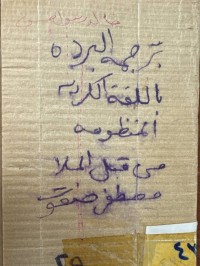 ترجمه البرده
باللغة الكردية
المنظومه
من قبل الملا
مصطفى صفوت
٤٧